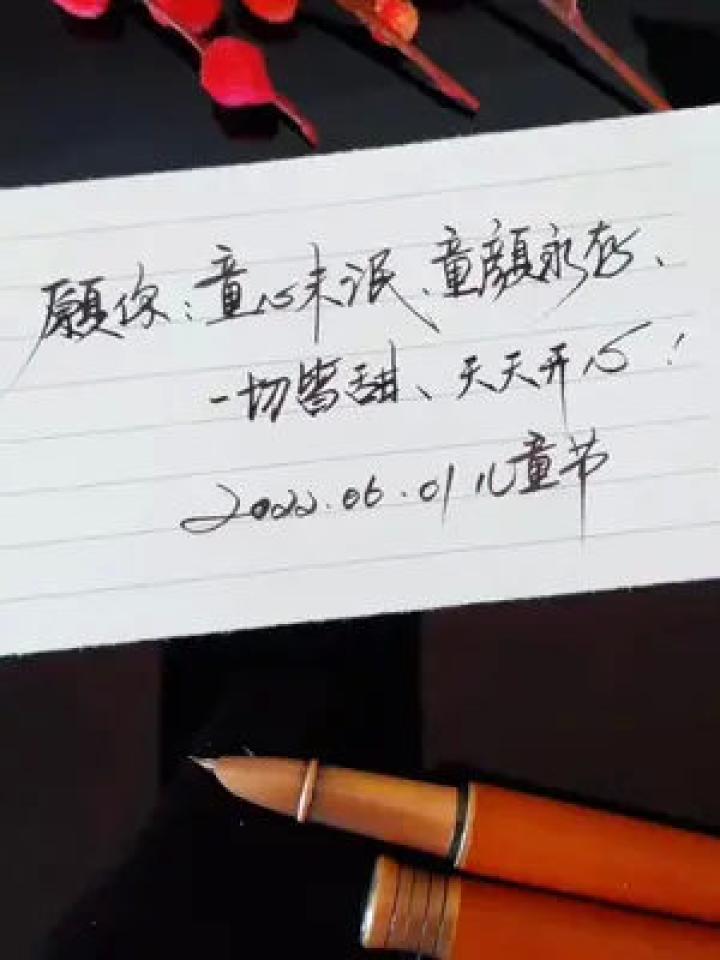 願你：童心未泯、童顔永存、
一切皆甜、天天开心！
2022.06.01儿童节